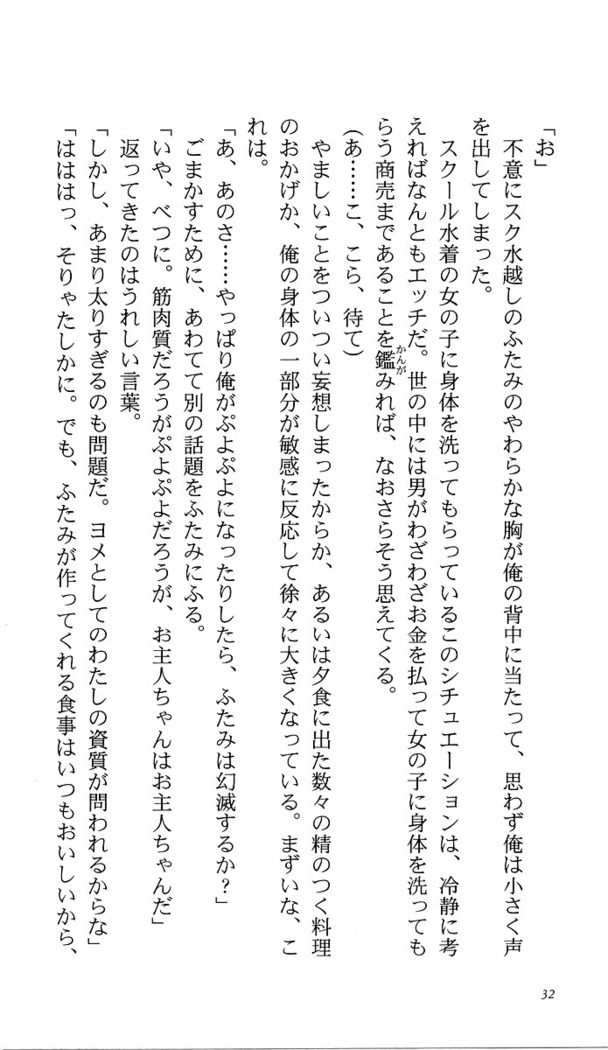 「お」
不意にスク水越しのふたみのやわらかな胸が俺の背中に当たって、思わず俺は小さく声
を出してしまった。
スクール水着の女の子に身体を洗ってもらっているこのシチュエーションは、冷静に考
えればなんともエッチだ。世の中には男がわざわざお金を払って女の子に身体を洗っても
らう商売まであることを鑑みれば、なおさらそう思えてくる。
かんが
(あ……こ、こら、待て)
やましいことをついつい妄想しまったからか、あるいは夕食に出た数々の精のつく料理
のおかげか、俺の身体の一部分が敏感に反応して徐々に大きくなっている。まずいな、こ
れは。
「あ、あのさ……やっぱり俺がぷよぷよになったりしたら、ふたみは幻滅するか?」
ごまかすために、あわてて別の話題をふたみにふる。
「いや、べつに。筋肉質だろうがぷよぷよだろうが、お主人ちゃんはお主人ちゃんだ」
返ってきたのはうれしい言葉。
「しかし、あまり太りすぎるのも問題だ。ヨメとしてのわたしの資質が問われるからな」
「はははっ、そりゃたしかに。でも、ふたみが作ってくれる食事はいつもおいしいから、
32